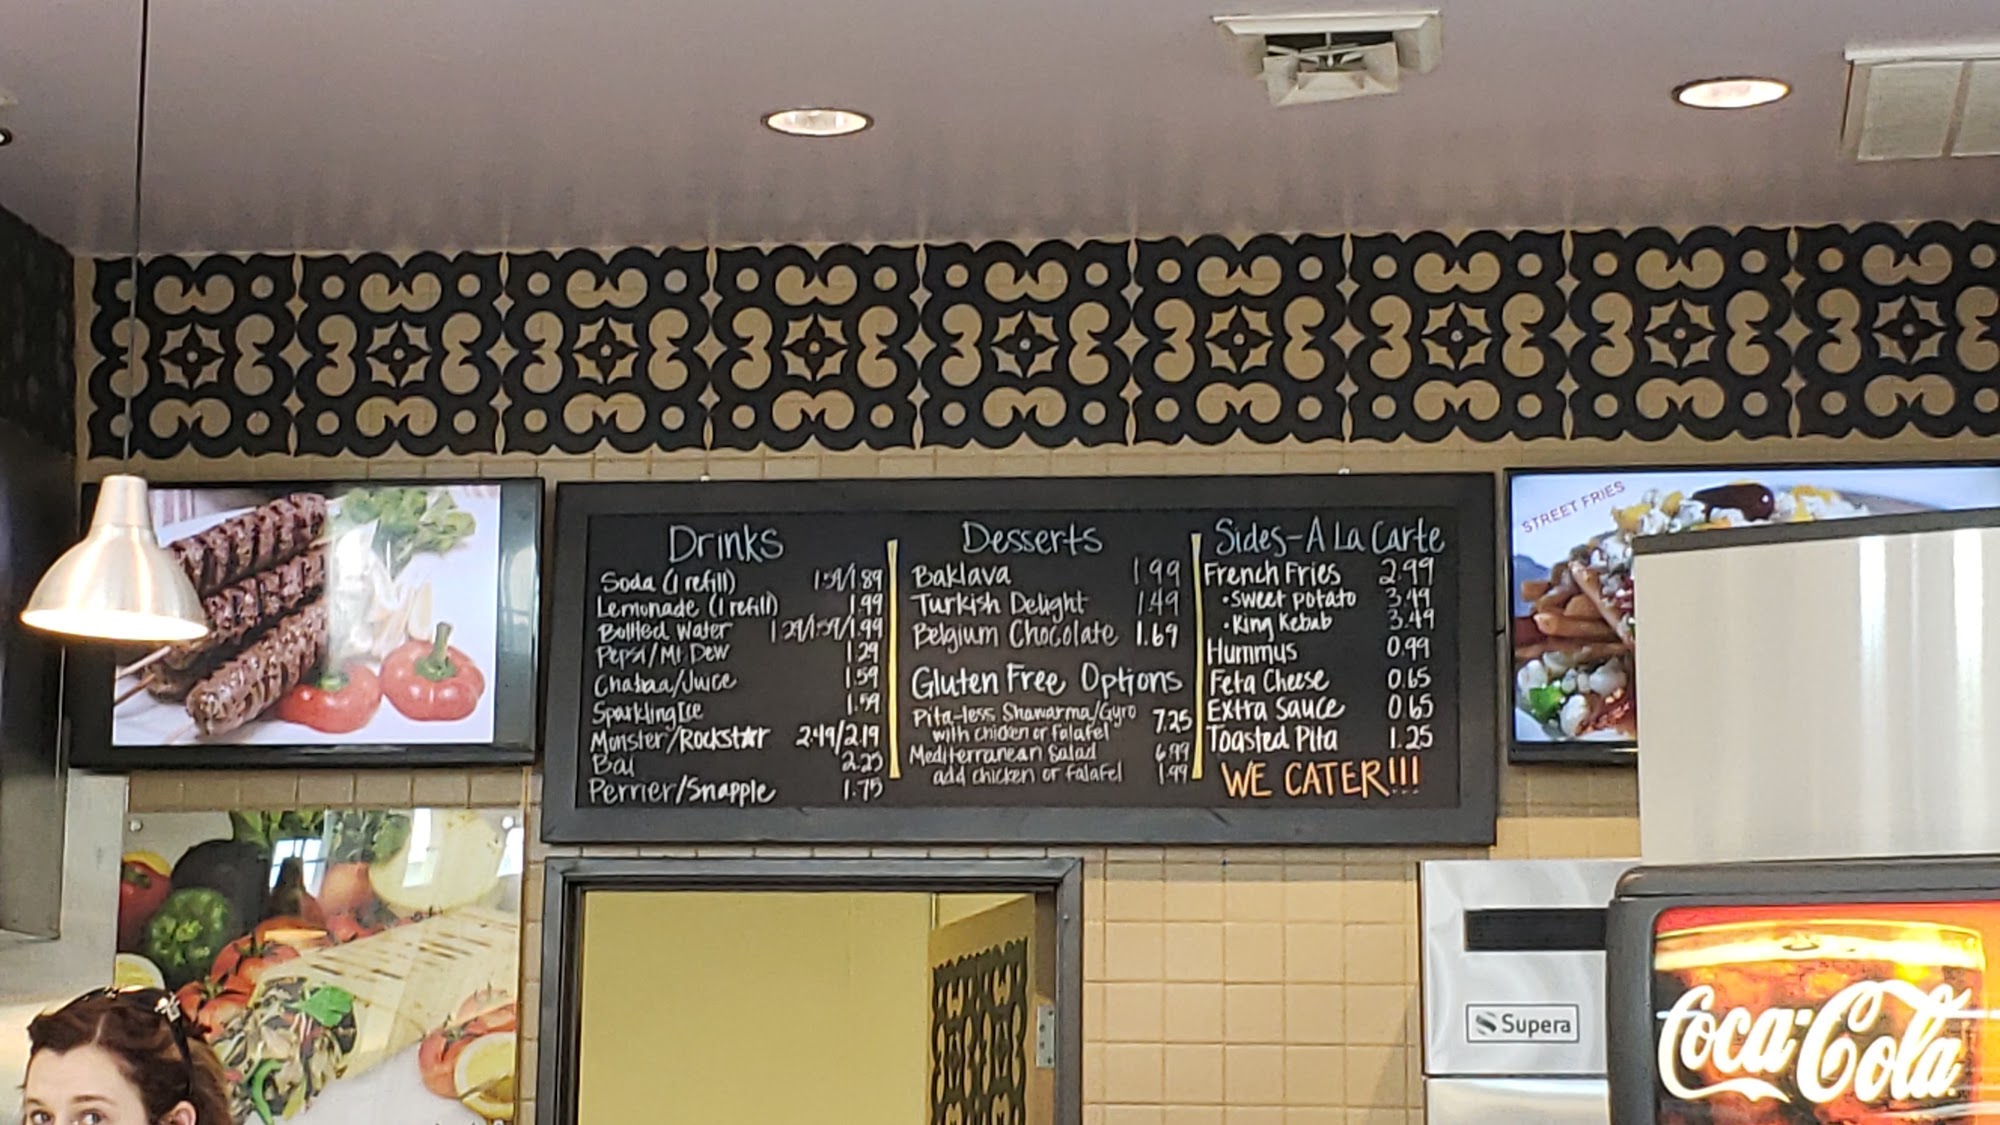 Drinks
Soda (1 refill) 1.59/1.89
Lemonade (1 refill) 1.99
Bottled Water 1.29/1.59/1.99
Pepsi/Mt Dew 1.29
Chabaa/Juice 1.59
Sparkling Ice 1.59
Monster/Rockst★r 2.49/2.19
Bai 2.25
Perrier/Snapple 1.75
Desserts
Baklava 1.99
Turkish Delight 1.49
Belgium Chocolate 1.69
Gluten Free Options
Pita-less Shawarma/Gyro 7.25
with chicken or falafel
Mediterranean Salad 6.99
add chicken or falafel 1.99
Sides-A La Carte
French Fries 2.99
•Sweet potato 3.49
•King Kebab 3.49
Hummus 0.99
Feta Cheese 0.65
Extra Sauce 0.65
Toasted Pita 1.25
WE CATER!!!
STREET FRIES
Supera
Coca-Cola